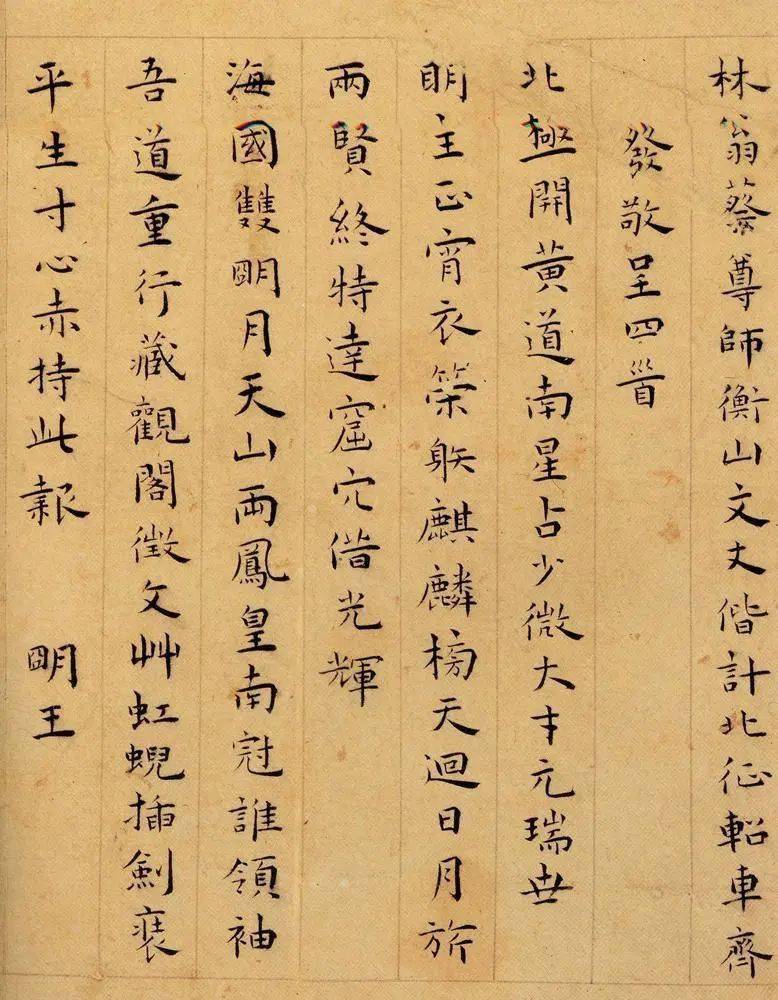 林翁蔡尊師衡山文丈偕計北征軺車齊
發敬呈四首
北極開黃道南星占少微大才元瑞世
明主正宵衣榮躭麒麟榜天迴日月旂
兩賢終特達窟穴偕光輝
海國雙明月天山兩鳳皇南冠誰領袖
吾道重行藏觀閣徵文艸虹蜺插劍裝
平生寸心赤持此報 明王